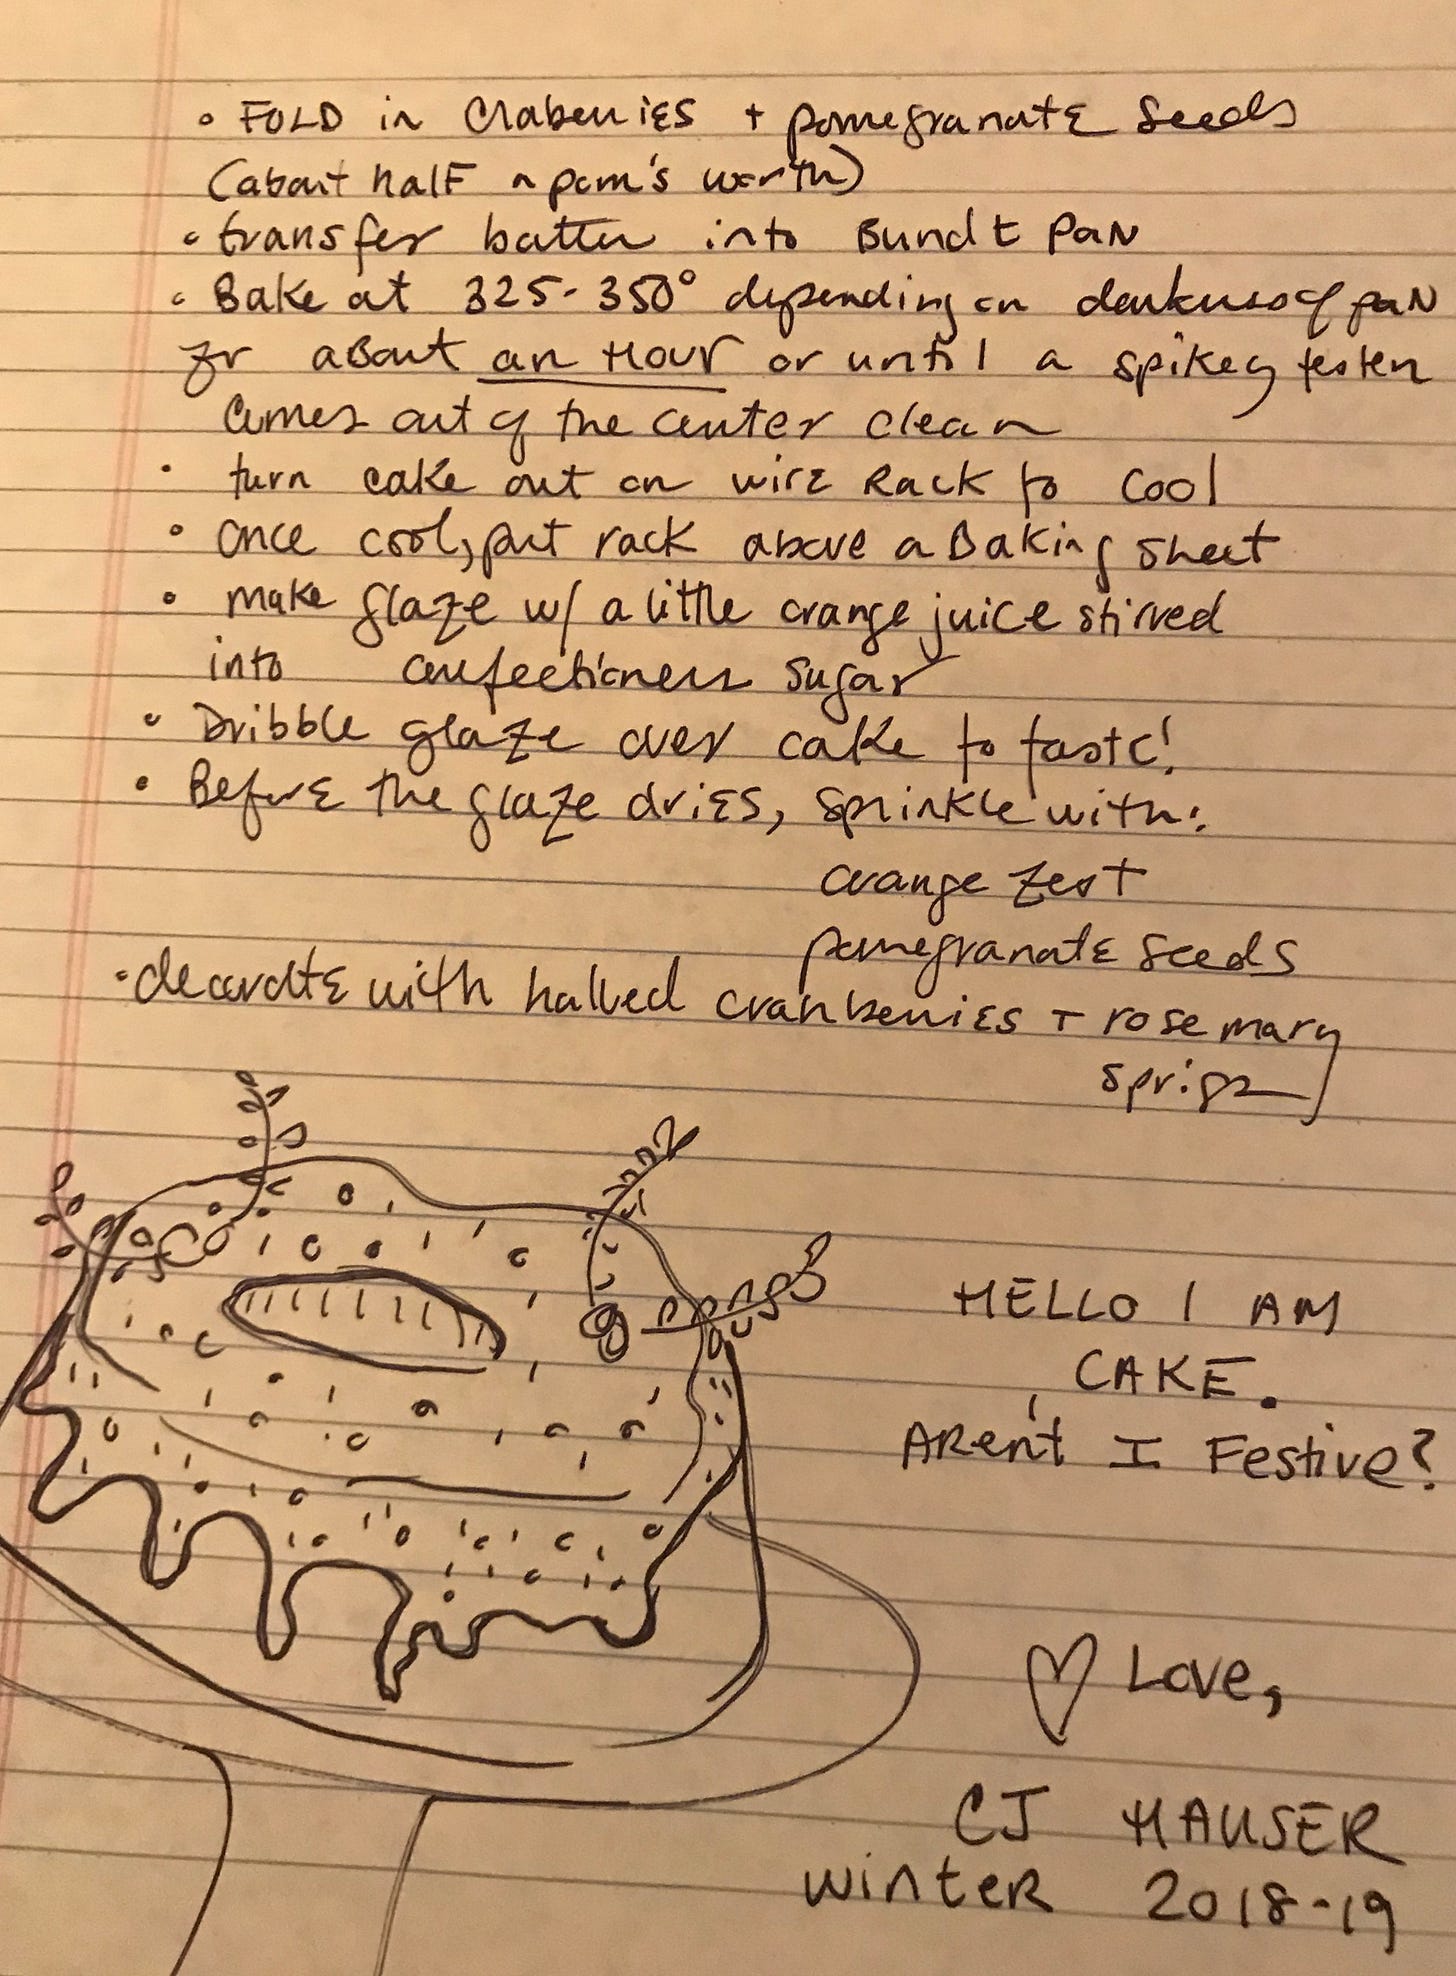 • FOLD in Craberries + pomegranate seeds
(about half a pom's worth)
• transfer batter into Bundt Pan
• Bake at 325-350° depending on darkness of pan
for about an Hour or until a spikey tester
comes out of the center clean
• turn cake out on wire Rack to cool
• once cool, put rack above a Baking sheet
• make glaze w/ a little orange juice stirred
into confectioners sugar
• Dribble glaze over cake to taste!
• Before the glaze dries, sprinkle with:
orange zest
pomegranate seeds
• decorate with halved cranberries + rosemary
sprigs
HELLO I AM
CAKE.
Aren't I Festive?
♡ Love,
CJ HAUSER
winter 2018-19